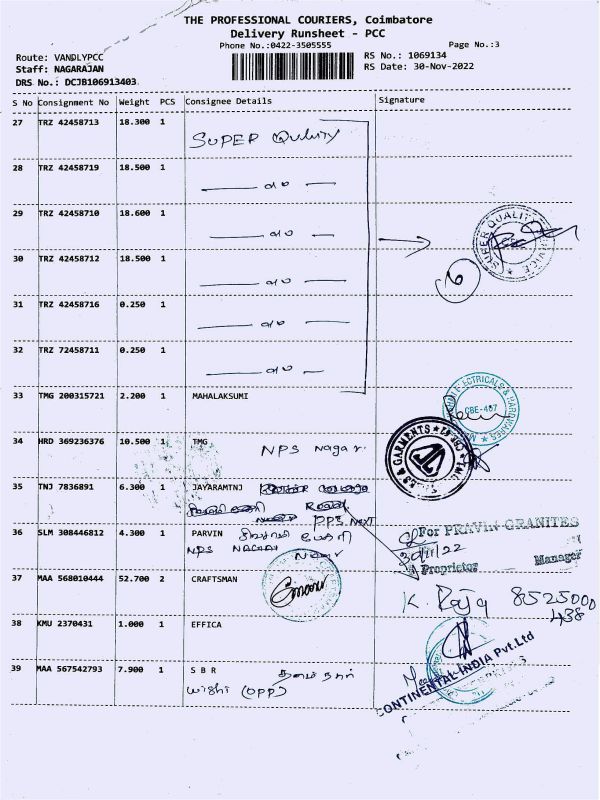 THE PROFESSIONAL COURIERS, Coimbatore
Delivery Runsheet - PCC
Phone No.:0422-3505555
Page No.:3
Route: VANDLYPCC
Staff: NAGARAJAN
DRS No.: DCJB106913403
RS No.: 1069134
RS Date: 30-Nov-2022
S No Consignment No Weight PCS Consignee Details Signature
27 TRZ 42458713 18.300 1 SUPER Quality
28 TRZ 42458719 18.500 1
29 TRZ 42458710 18.600 1
30 TRZ 42458712 18.500 1
SUPER QUALITY SERVICE
6
31 TRZ 42458716 0.250 1
32 TRZ 72458711 0.250 1
33 TMG 200315721 2.200 1 MAHALAKSUMI
ELECTRICALS & HARDWARES
CBE-407
34 HRD 369236376 10.500 1 TMG
NPS Nagar
& GARMENTS
35 TNJ 7836891 6.300 1 JAYARAMTNJ
Road
PPS Next
36 SLM 308446812 4.300 1 PARVIN
NPS NAGAR
For PRAVIN GRANITES
30/11/22
Proprietor Manager
37 MAA 568010444 52.700 2 CRAFTSMAN
K. Raja 8525000
438
38 KMU 2370431 1.000 1 EFFICA
39 MAA 567542793 7.900 1 S B R
(OPP)
CONTINENTAL INDIA Pvt.Ltd